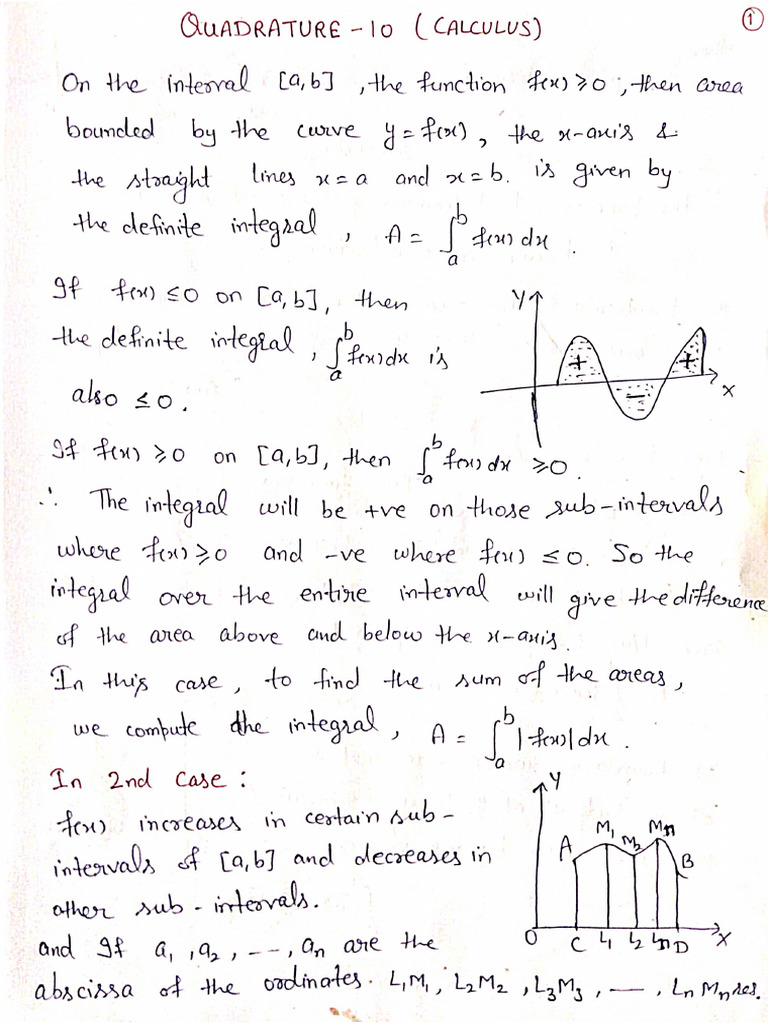 QUADRATURE - 10 (CALCULUS)
①
On the interval [a,b], the function f(x) ≥ 0, then area
bounded by the curve y = f(x), the x-axis &
the straight lines x = a and x = b. is given by
the definite integral, A = ∫_a^b f(x) dx.
If f(x) ≤ 0 on [a,b], then
the definite integral, ∫_a^b f(x) dx is
also ≤ 0.
Y
+
+
-
X
If f(x) ≥ 0 on [a,b], then ∫_a^b f(x) dx ≥ 0.
∴ The integral will be +ve on those sub-intervals
where f(x) ≥ 0 and -ve where f(x) ≤ 0. So the
integral over the entire interval will give the difference
of the area above and below the x-axis.
In this case, to find the sum of the areas,
we compute the integral, A = ∫_a^b |f(x)| dx.
In 2nd Case:
f(x) increases in certain sub-
intervals of [a,b] and decreases in
other sub-intervals.
and If a₁, a₂, ---, aₙ are the
abscissa of the ordinates. L₁M₁, L₂M₂, L₃M₃, —, LₙMₙ res.
Y
A M₁ M₂ Mₙ B
O C L₁ L₂ Lₙ D X